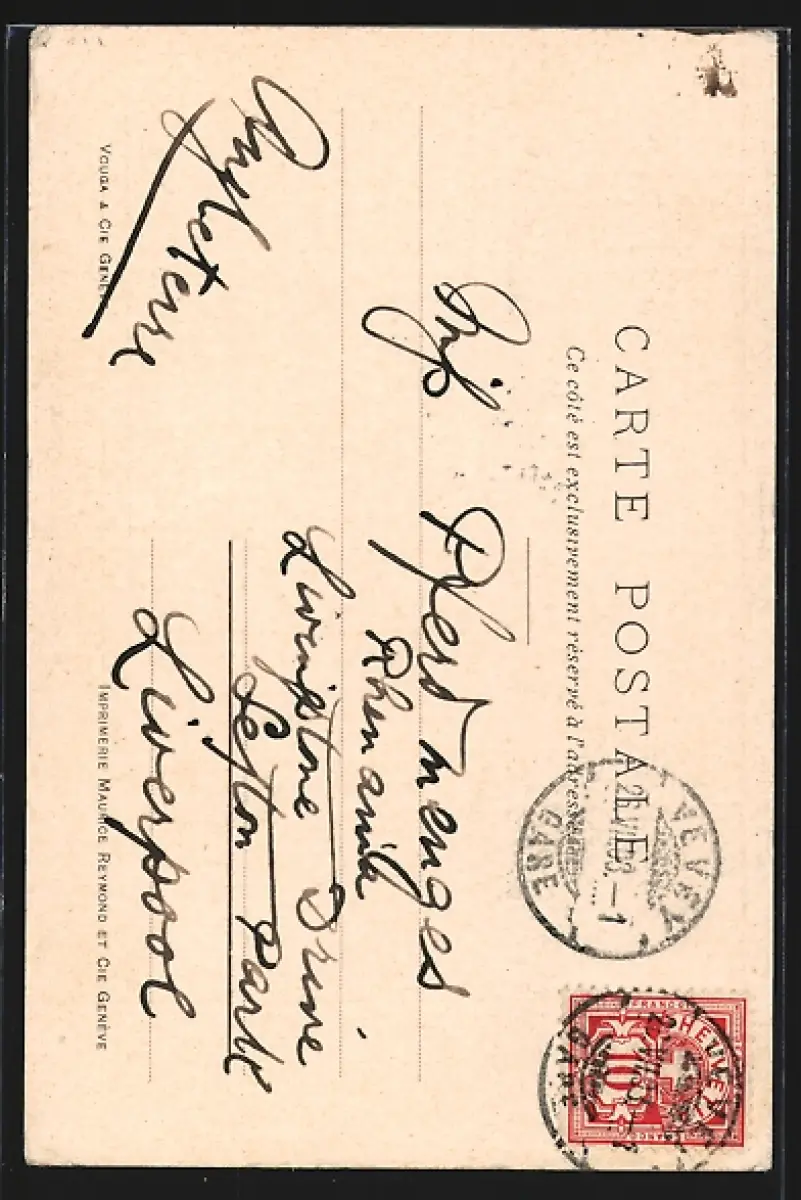 CARTE POSTALE
Ce côté est exclusivement réservé à l'adresse
VEVEY
GARE
FRANCO
HELVETIA
10
Pferdmenges
Rhenania
Livingstone Drive
Sefton Park
Liverpool
Angleterre
VOUGA & CIE GENÈ
IMPRIMERIE MAURICE REYMOND ET CIE GENÈVE